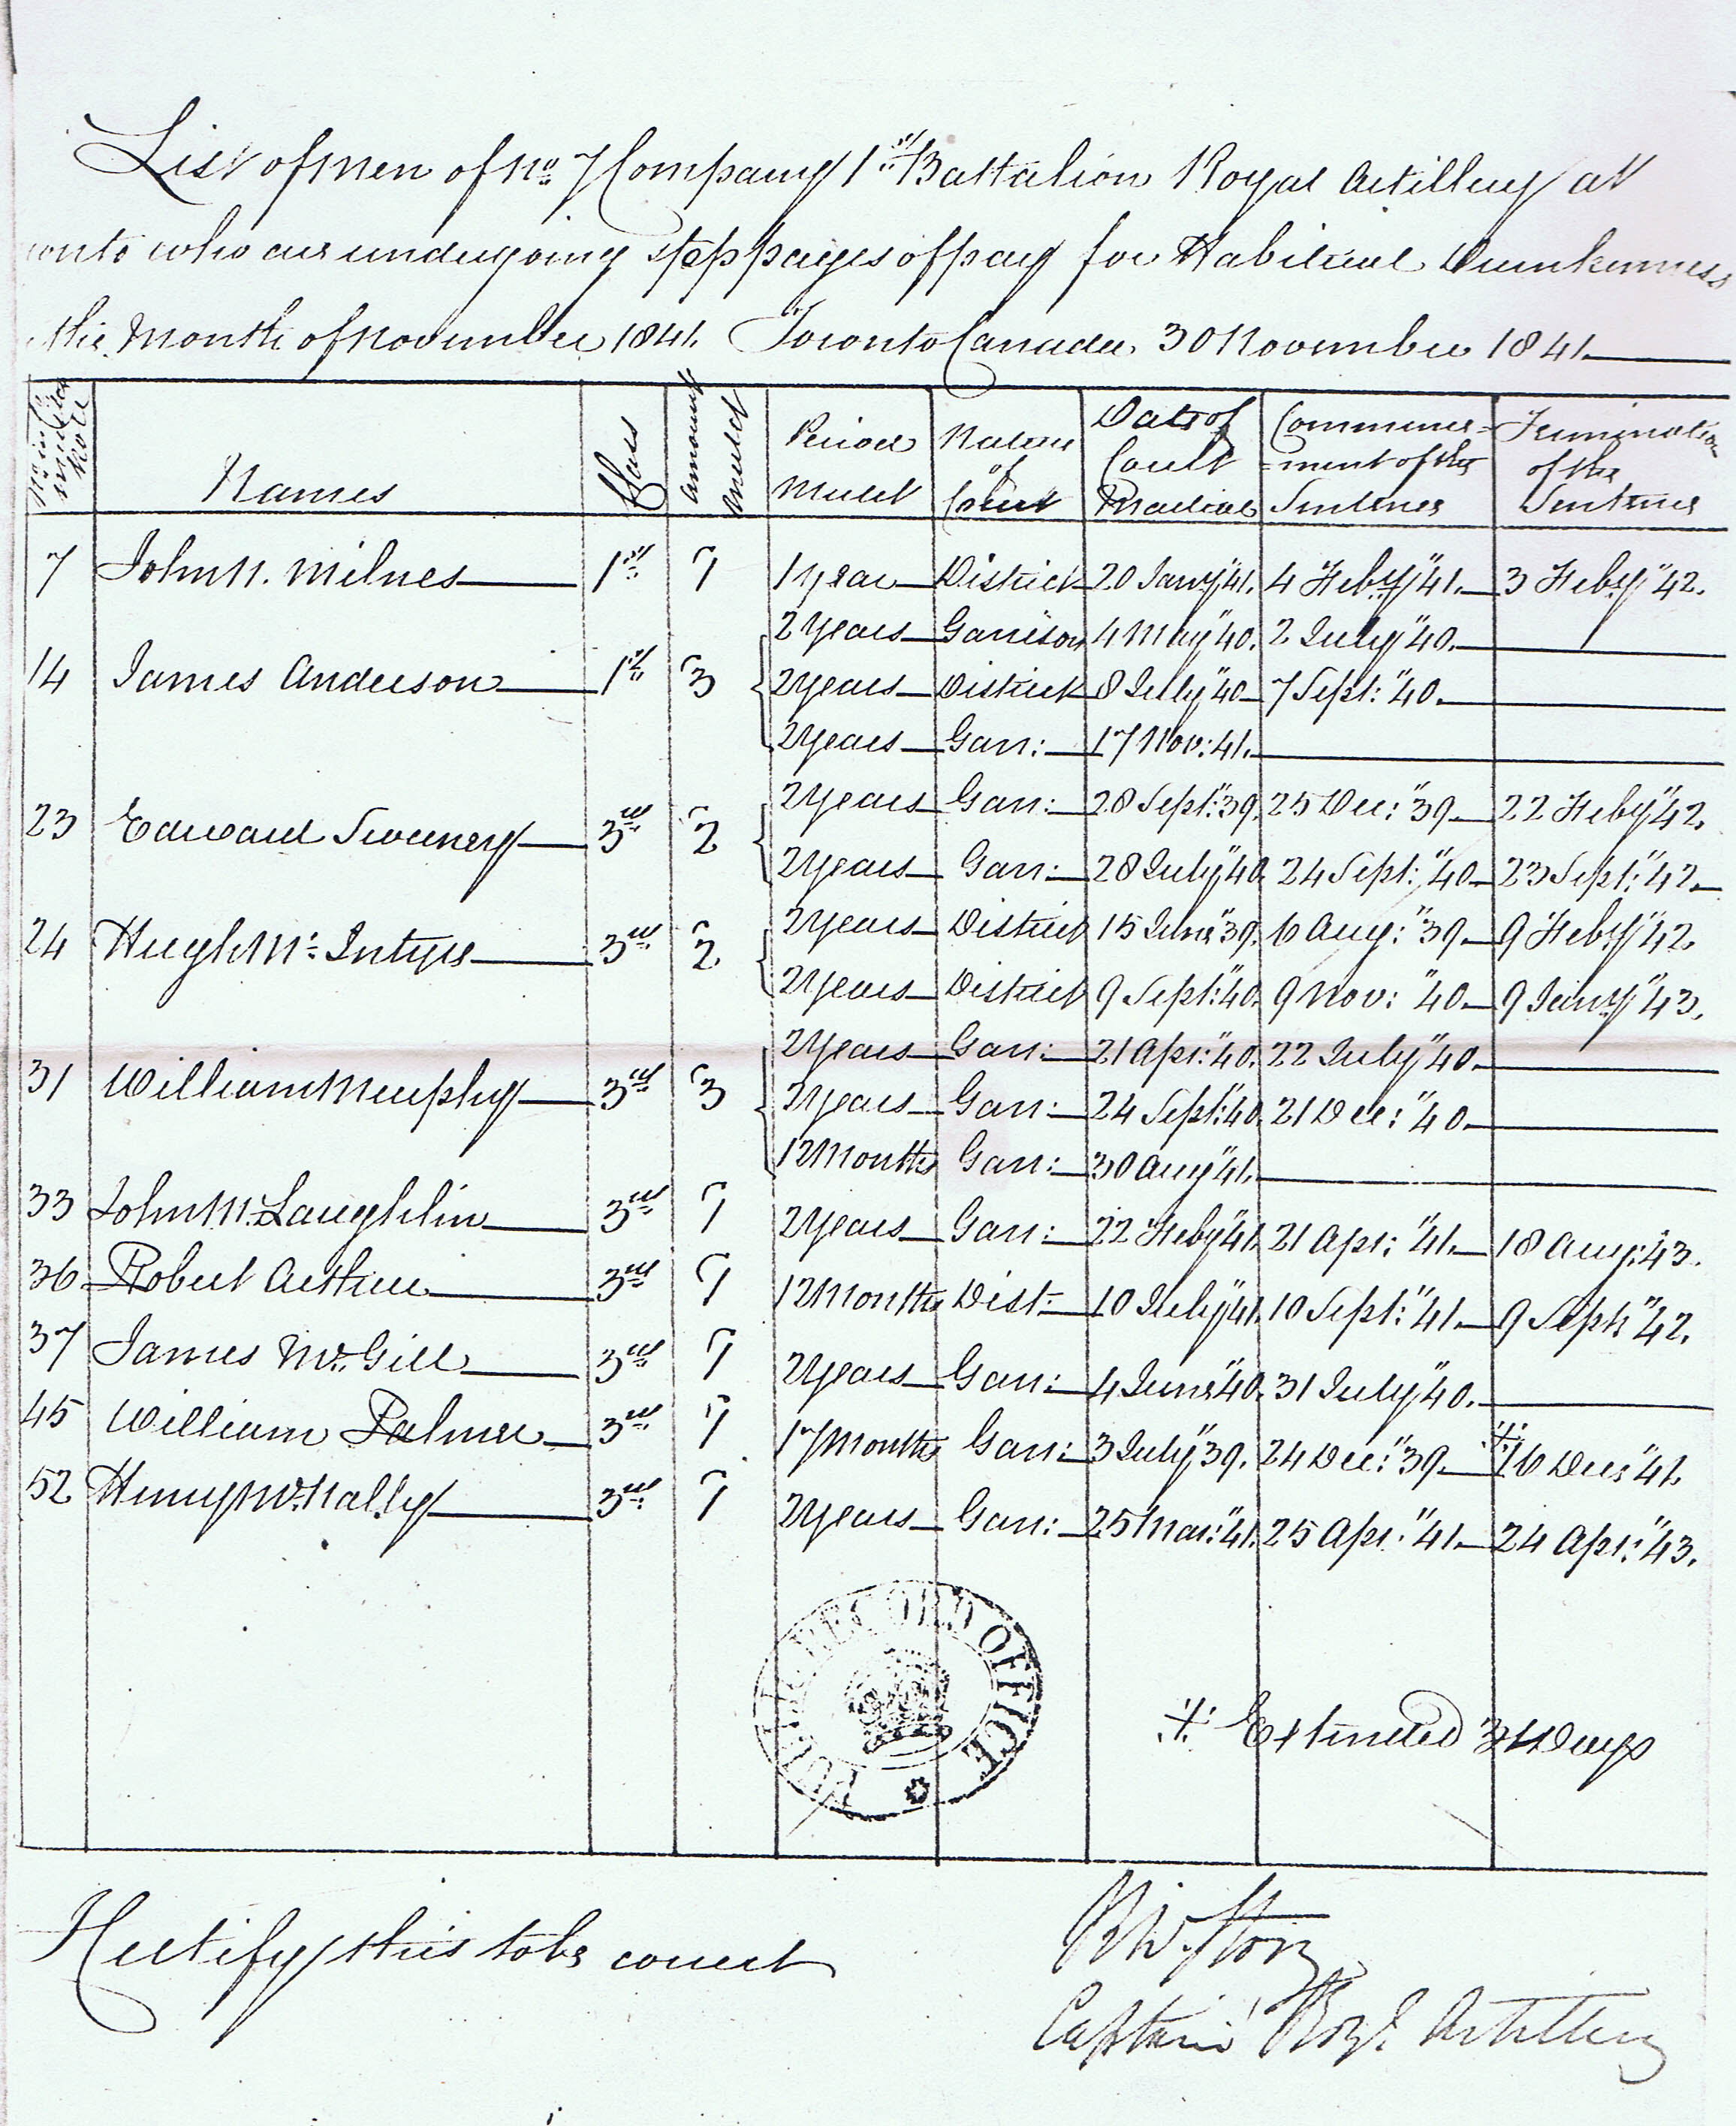 List of Men of No. 7 Company 1st Battalion Royal Artillery at
onto who are undergoing stoppages of pay for Habitual Drunkenness
the Month of November 1841. Toronto Canada 30 November 1841.
No. in
Roll Names Class Amount Mulct Period Mulct Nature of Court Date of Court Martial Commence-ment of the Sentence Termination of the Sentence
7 John N. Milnes 1st 1 1 year District 20 Jany "41. 4 Feby "41. 3 Feby "42.
2 Years Garrison 4 May "40. 2 July "40.
14 James Anderson 1st 3 2 years District 8 July "40 7 Sept: "40.
2 Years Garr: 17 Nov: 41.
2 Years Garr: 28 Sept: "39. 25 Dec: "39 22 Feby "42.
23 Edward Sweeney 3rd 2
2 Years Garr: 28 July "40. 24 Sept: "40 23 Sept: "42
2 Years District 15 June "39. 6 Aug: "39 9 Feby "42.
24 Hugh Mc Intyre 3rd 2
2 Years District 9 Sept: "40. 9 Nov: "40 9 Jany "43.
2 Years Garr: 21 Apr: "40. 22 July "40.
31 William Murphy 3rd 3 2 Years Garr: 24 Sept: "40. 21 Dec: "40.
12 Months Garr: 30 Aug "41.
33 John McLaughlin 3rd 1 2 Years Garr: 22 Feby "41. 21 Apr: "41. 18 Aug: 43.
36 Robert Arthur 3rd 1 12 Months Dist: 10 July "41. 10 Sept: "41. 9 Sept: "42.
37 James McGill 3rd 1 2 Years Garr: 4 June "40. 31 July "40.
45 William Palmer 3rd 1 17 Months Garr: 3 July "39. 24 Dec: "39. 16 Decr "41.
52 Henry McNally 3rd 1 2 Years Garr: 25 Mar: "41. 25 Apr: "41. 24 Apr: "43.
PUBLIC RECORD OFFICE
Extended Days
I Certify this to be correct
Captain Royl Artillery